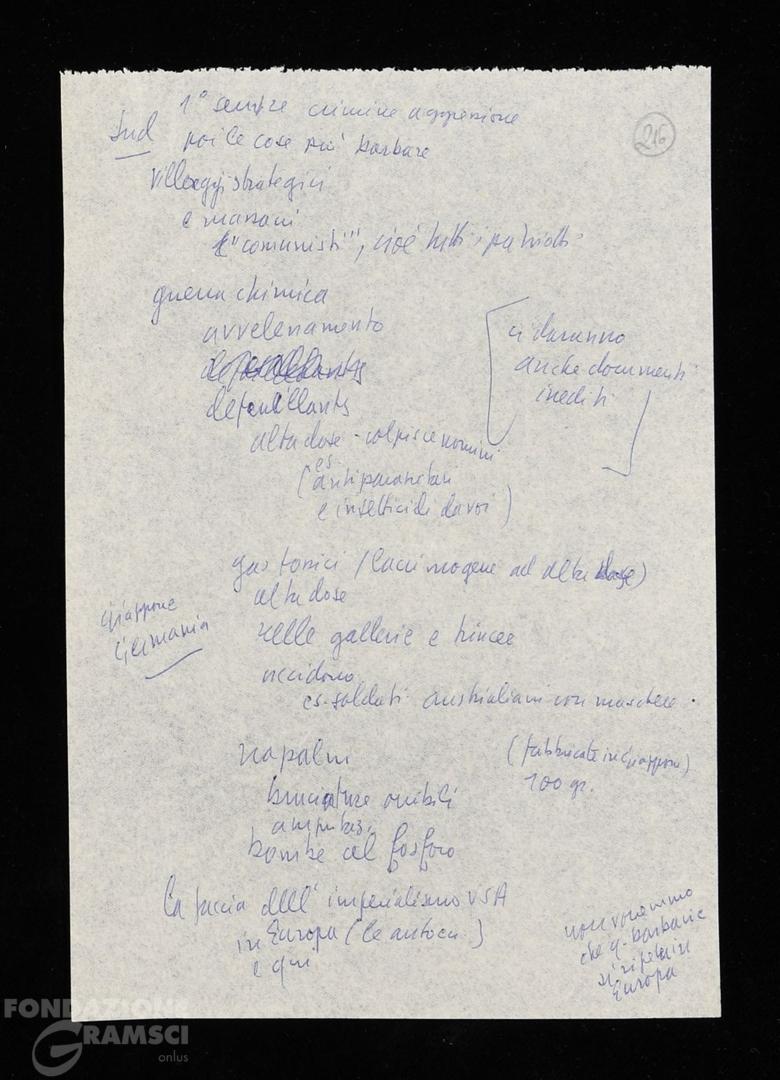 216
1° sempre crimine aggressione
Sud
poi le cose più barbare
villaggi strategici
e massacri
"comunisti", cioè tutti i patrioti
guerra chimica
avvelenamento
ci daranno
anche documenti
inediti
defoliants
alta dose - colpisce uomini
(es
antiparassitari
e insetticidi da noi)
gas tossici (lacrimogene ad alta dose)
alta dose
Giappone
Germania
nelle gallerie e trincee
uccidono
es. soldati australiani con maschere.
napalm
(fabbricate in Giappone)
100 gr.
bruciature orribili
amputaz.
bombe al fosforo
la faccia dell'imperialismo USA
in Europa (le autocr)
e qui
non vorremmo
che q. barbarie
si ripeta in
Europa
FONDAZIONE
GRAMSCI
onlus